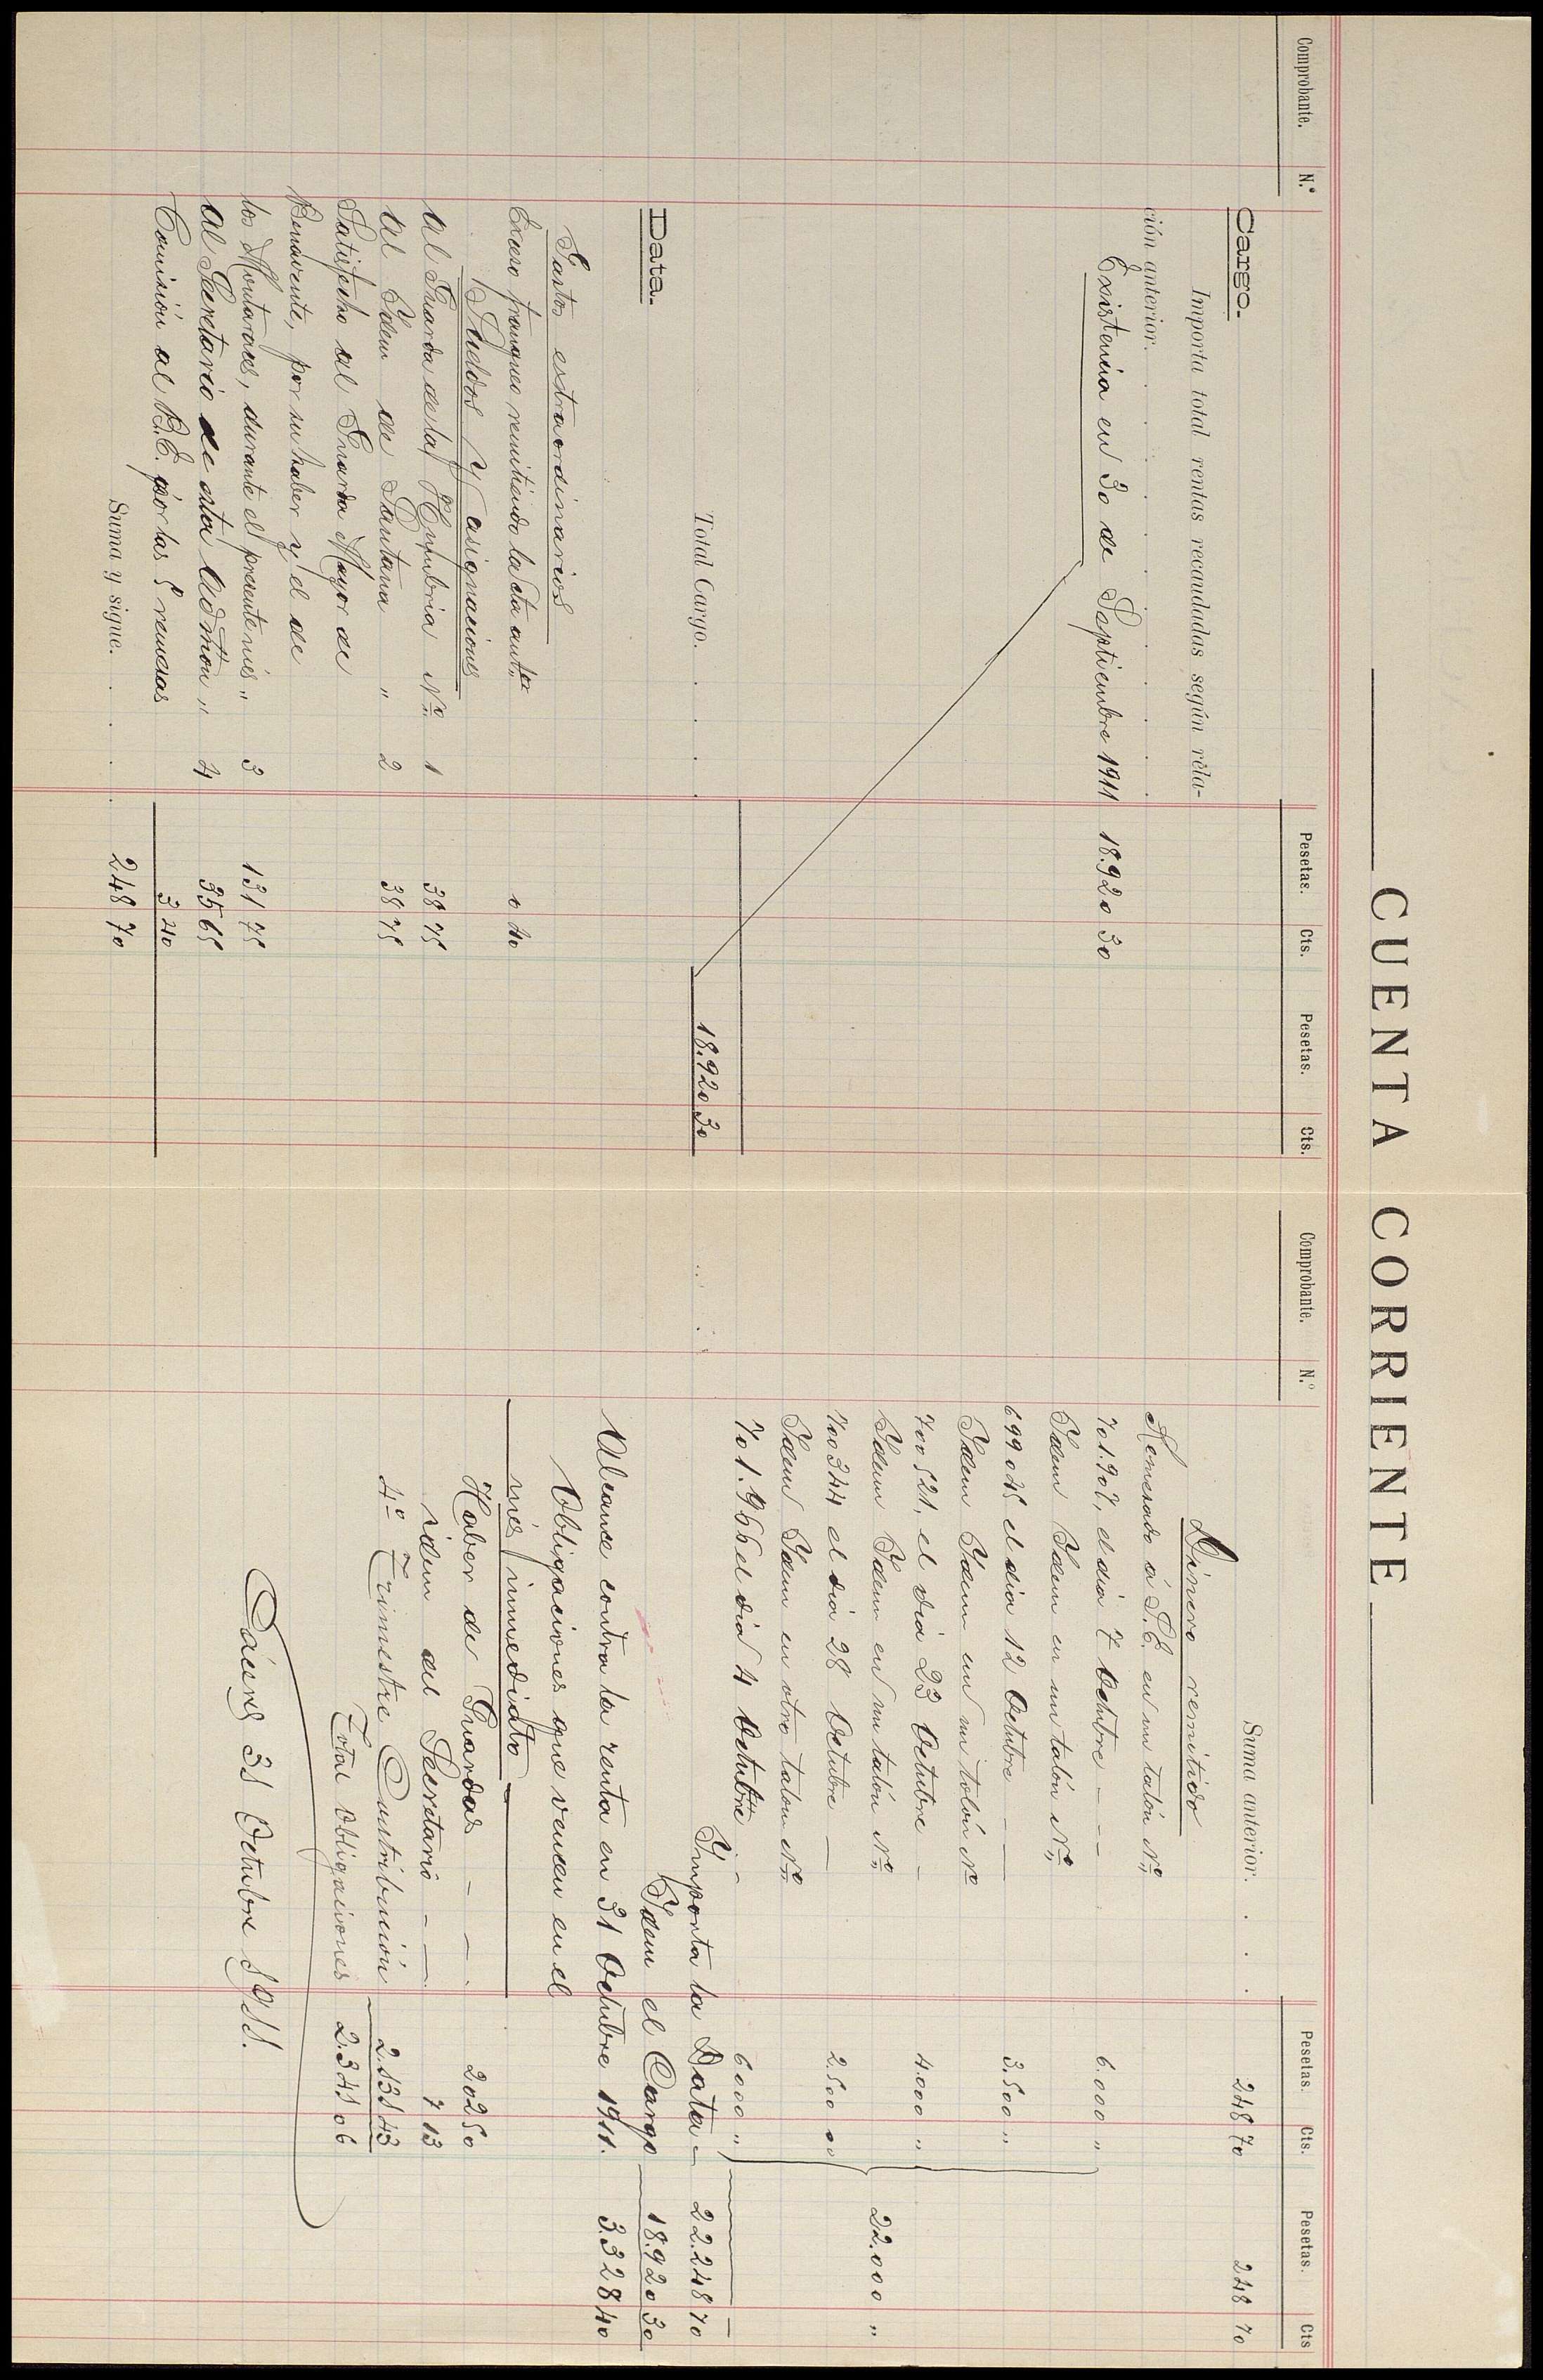 CUENTA CORRIENTE
Comprobante. N.º Pesetas. Cts. Pesetas. Cts.
Cargo.
Importa total rentas recaudadas según rela-
ción anterior. . . . . . . . . .
Existencia en 30 de Septiembre 1911 18.920 30
Total Cargo. . . . 18.920 30
Data.
Gastos extraordinarios
Exceso franqueo remitiendo la cta antor 0 40
Sueldos y asignaciones
Al Guarda de la Enjubria Nº 1 38 75
Al Idem de Santana " 2 38 75
Satisfecho al Guarda Mayor de
Benavente, por su haber y el de
los Montaraces, durante el presente més " 3 131 75
Al Secretario de esta Admon " 4 35 65
Comisión al B.E. por las 5 remesas 3 40
Suma y sigue. . . . 248 70
Comprobante. N.º Pesetas. Cts. Pesetas. Cts
Suma anterior. . . . 248 70 248 70
Dinero remitido
Remesado á S.E. en un talón Nº
701.907, el día 7 Octubre - - - 6.000 "
Idem Idem en un talón Nº
699045 el día 12 Octubre - - 3.500 "
Idem Idem en un talón Nº
700521, el día 23 Octubre - 4.000 "
Idem Idem en un talón Nº
700344 el día 28 Octubre - 2.500 00 22.000 "
Idem Idem en otro talon Nº
701.966 el día 4 Octubre - - 6000 "
Importa la Data - 22.248 70
Idem el Cargo - 18.920 30
Alcance contra la renta en 31 Octubre 1911. 3.328 40
Obligaciones que vencen en el
més inmediato
Haber de Guardas - - - 202 50
idem del Secretario - - 7 13
4º Trimestre Contribución 2.131 43
Total obligaciones 2.341 06
Cáceres 31 Octubre 1911.